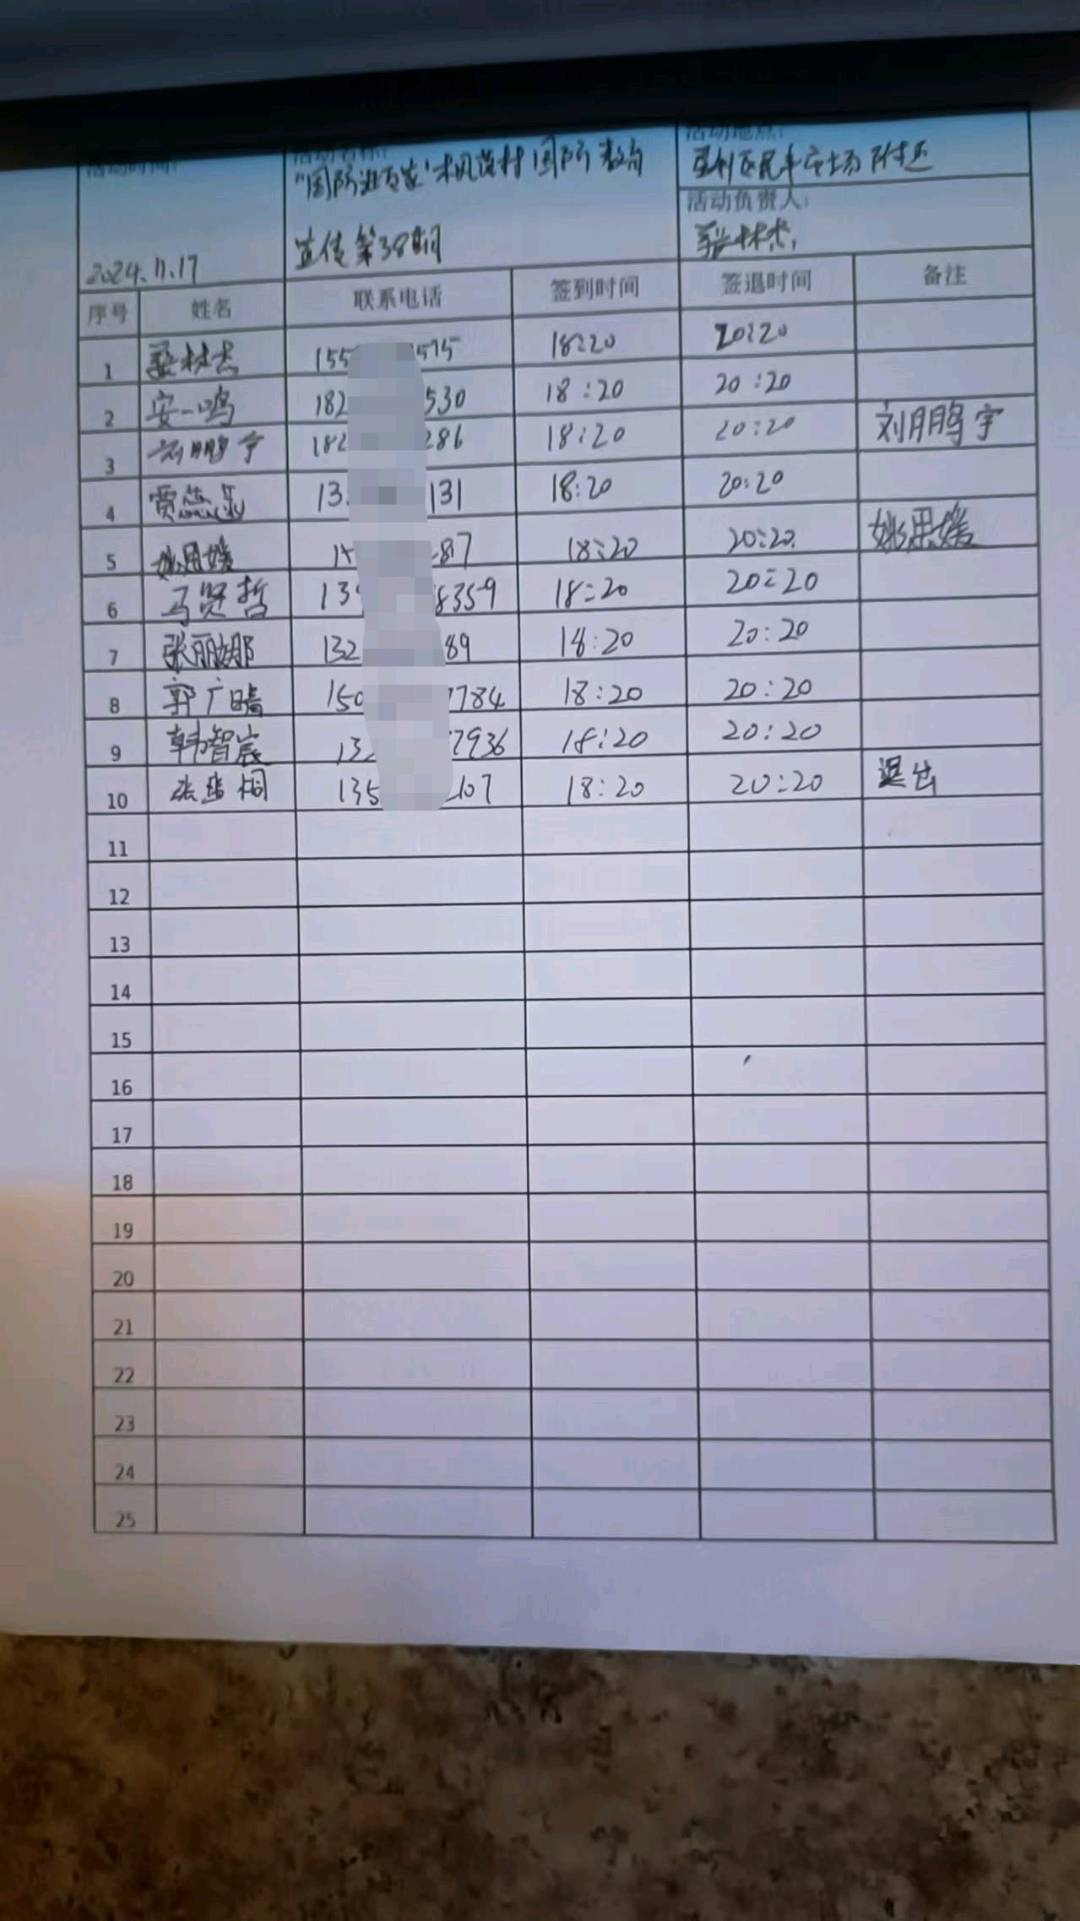 活动时间: 活动名称: 活动地点:
"国防进万家"木凤营村国防教育 民丰广场附近
活动负责人:
宣传第38期
2024.11.17
序号 姓名 联系电话 签到时间 签退时间 备注
1 林杰 155 575 18:20 20:20
2 安一鸣 182 530 18:20 20:20
3 刘鹏宇 182 286 18:20 20:20 刘鹏宇
4 贾 13 131 18:20 20:20
5 姚思媛 87 18:20 20:20 姚思媛
6 马贤哲 139 8359 18:20 20:20
7 张丽娜 132 89 18:20 20:20
8 郭广晴 150 7784 18:20 20:20
9 韩智宸 132 7936 18:20 20:20
10 张 桐 135 107 18:20 20:20 退出
11
12
13
14
15
16
17
18
19
20
21
22
23
24
25